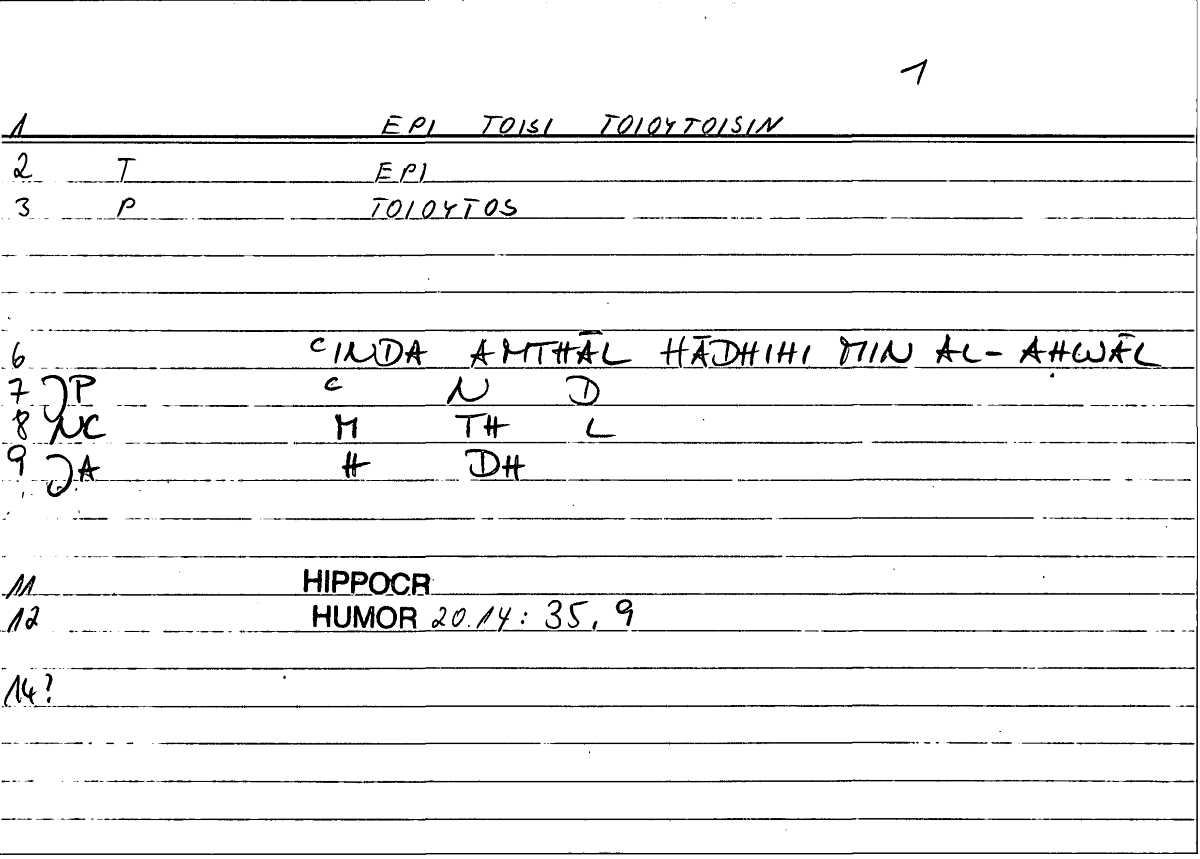 1
1 EPI TOISI TOIOYTOISIN
2 T EPI
3 P TOIOYTOS
6 ᶜINDA AMTHĀL HĀDHIHI MIN AL-AḤWĀL
7 JP ᶜ N D
8 NC M TH L
9 JA H DH
11 HIPPOCR
12 HUMOR 20.14: 35, 9
14?